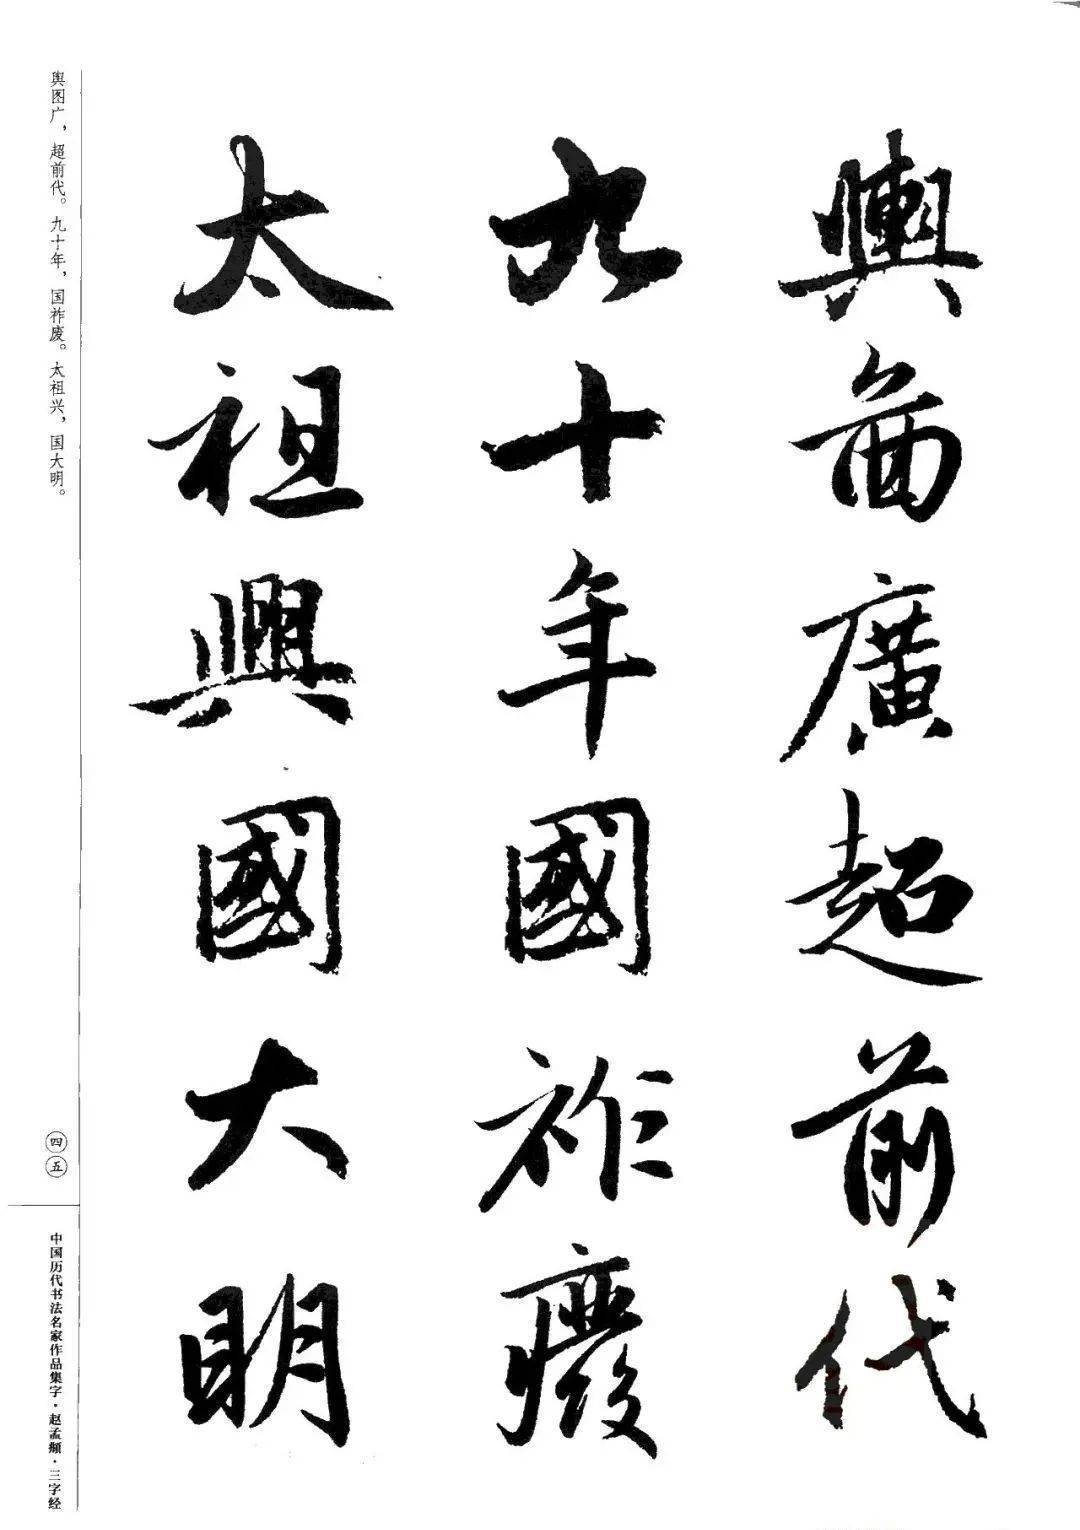 輿啚廣超前代
九十年國祚廢
太祖興國大明
舆图广，超前代。九十年，国祚废。太祖兴，国大明。
四五
中国历代书法名家作品集字·赵孟頫·三字经